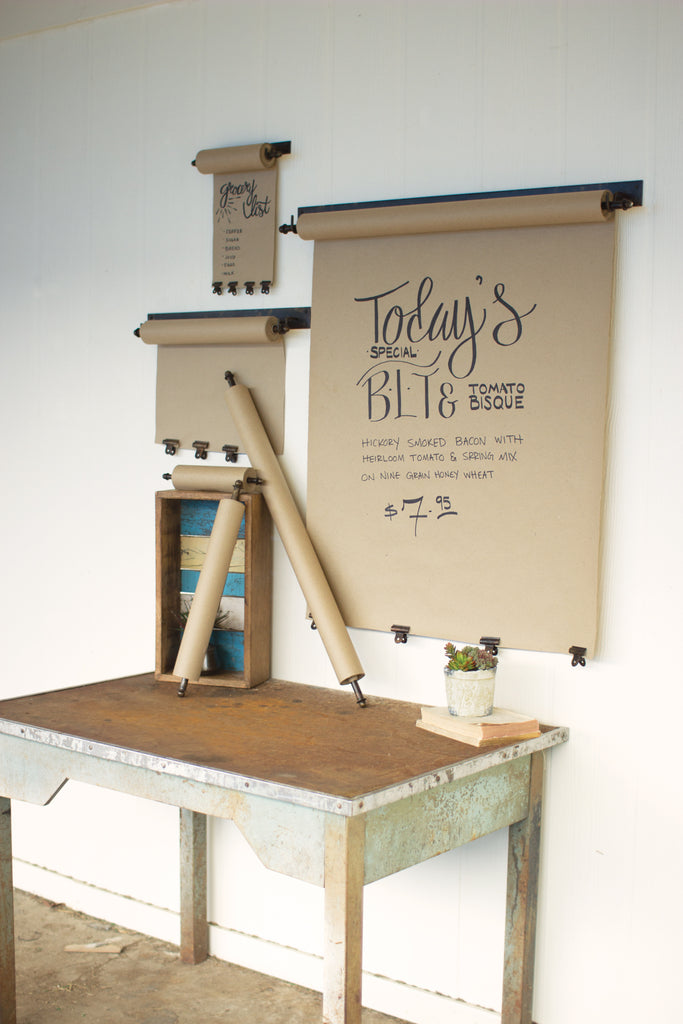 grocery
list
- COFFEE
- SUGAR
- BREAD
- JUICE
- EGGS
- MILK
Today's
·SPECIAL·
B·L·T & TOMATO
BISQUE
HICKORY SMOKED BACON WITH
HEIRLOOM TOMATO & SPRING MIX
ON NINE GRAIN HONEY WHEAT
$7.95